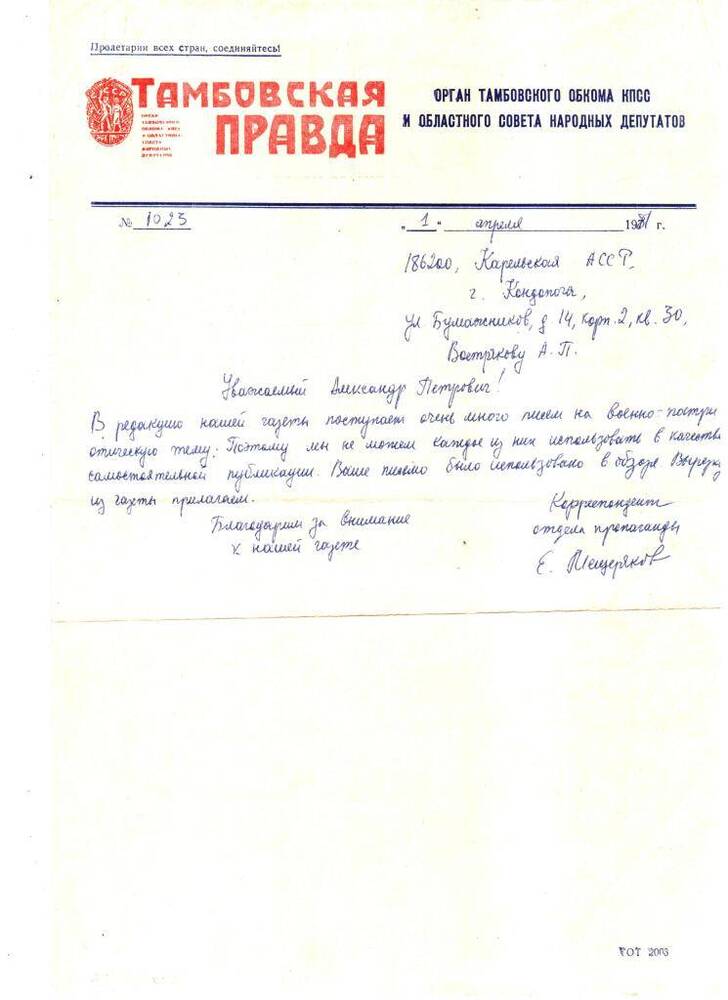 Пролетарии всех стран, соединяйтесь!
ТАМБОВСКАЯ
ПРАВДА
ОРГАН
ТАМБОВСКОГО
ОБКОМА КПСС
И ОБЛАСТНОГО
СОВЕТА
НАРОДНЫХ
ДЕПУТАТОВ
ОРГАН ТАМБОВСКОГО ОБКОМА КПСС
И ОБЛАСТНОГО СОВЕТА НАРОДНЫХ ДЕПУТАТОВ
№ 1023
"1" апреля 1981 г.
186200, Карельская АССР,
г. Кондопога,
ул Бумажников, д 14, корп. 2, кв. 30,
Вострякову А. П.
Уважаемый Александр Петрович!
В редакцию нашей газеты поступает очень много писем на военно-патри
отическую тему. Поэтому мы не можем каждое из них использовать в качестве
самостоятельной публикации. Ваше письмо было использовано в обзоре. Вырезку
из газеты прилагаем.
Благодарим за внимание
к нашей газете
Корреспондент
отдела пропаганды
Е. Мещеряков